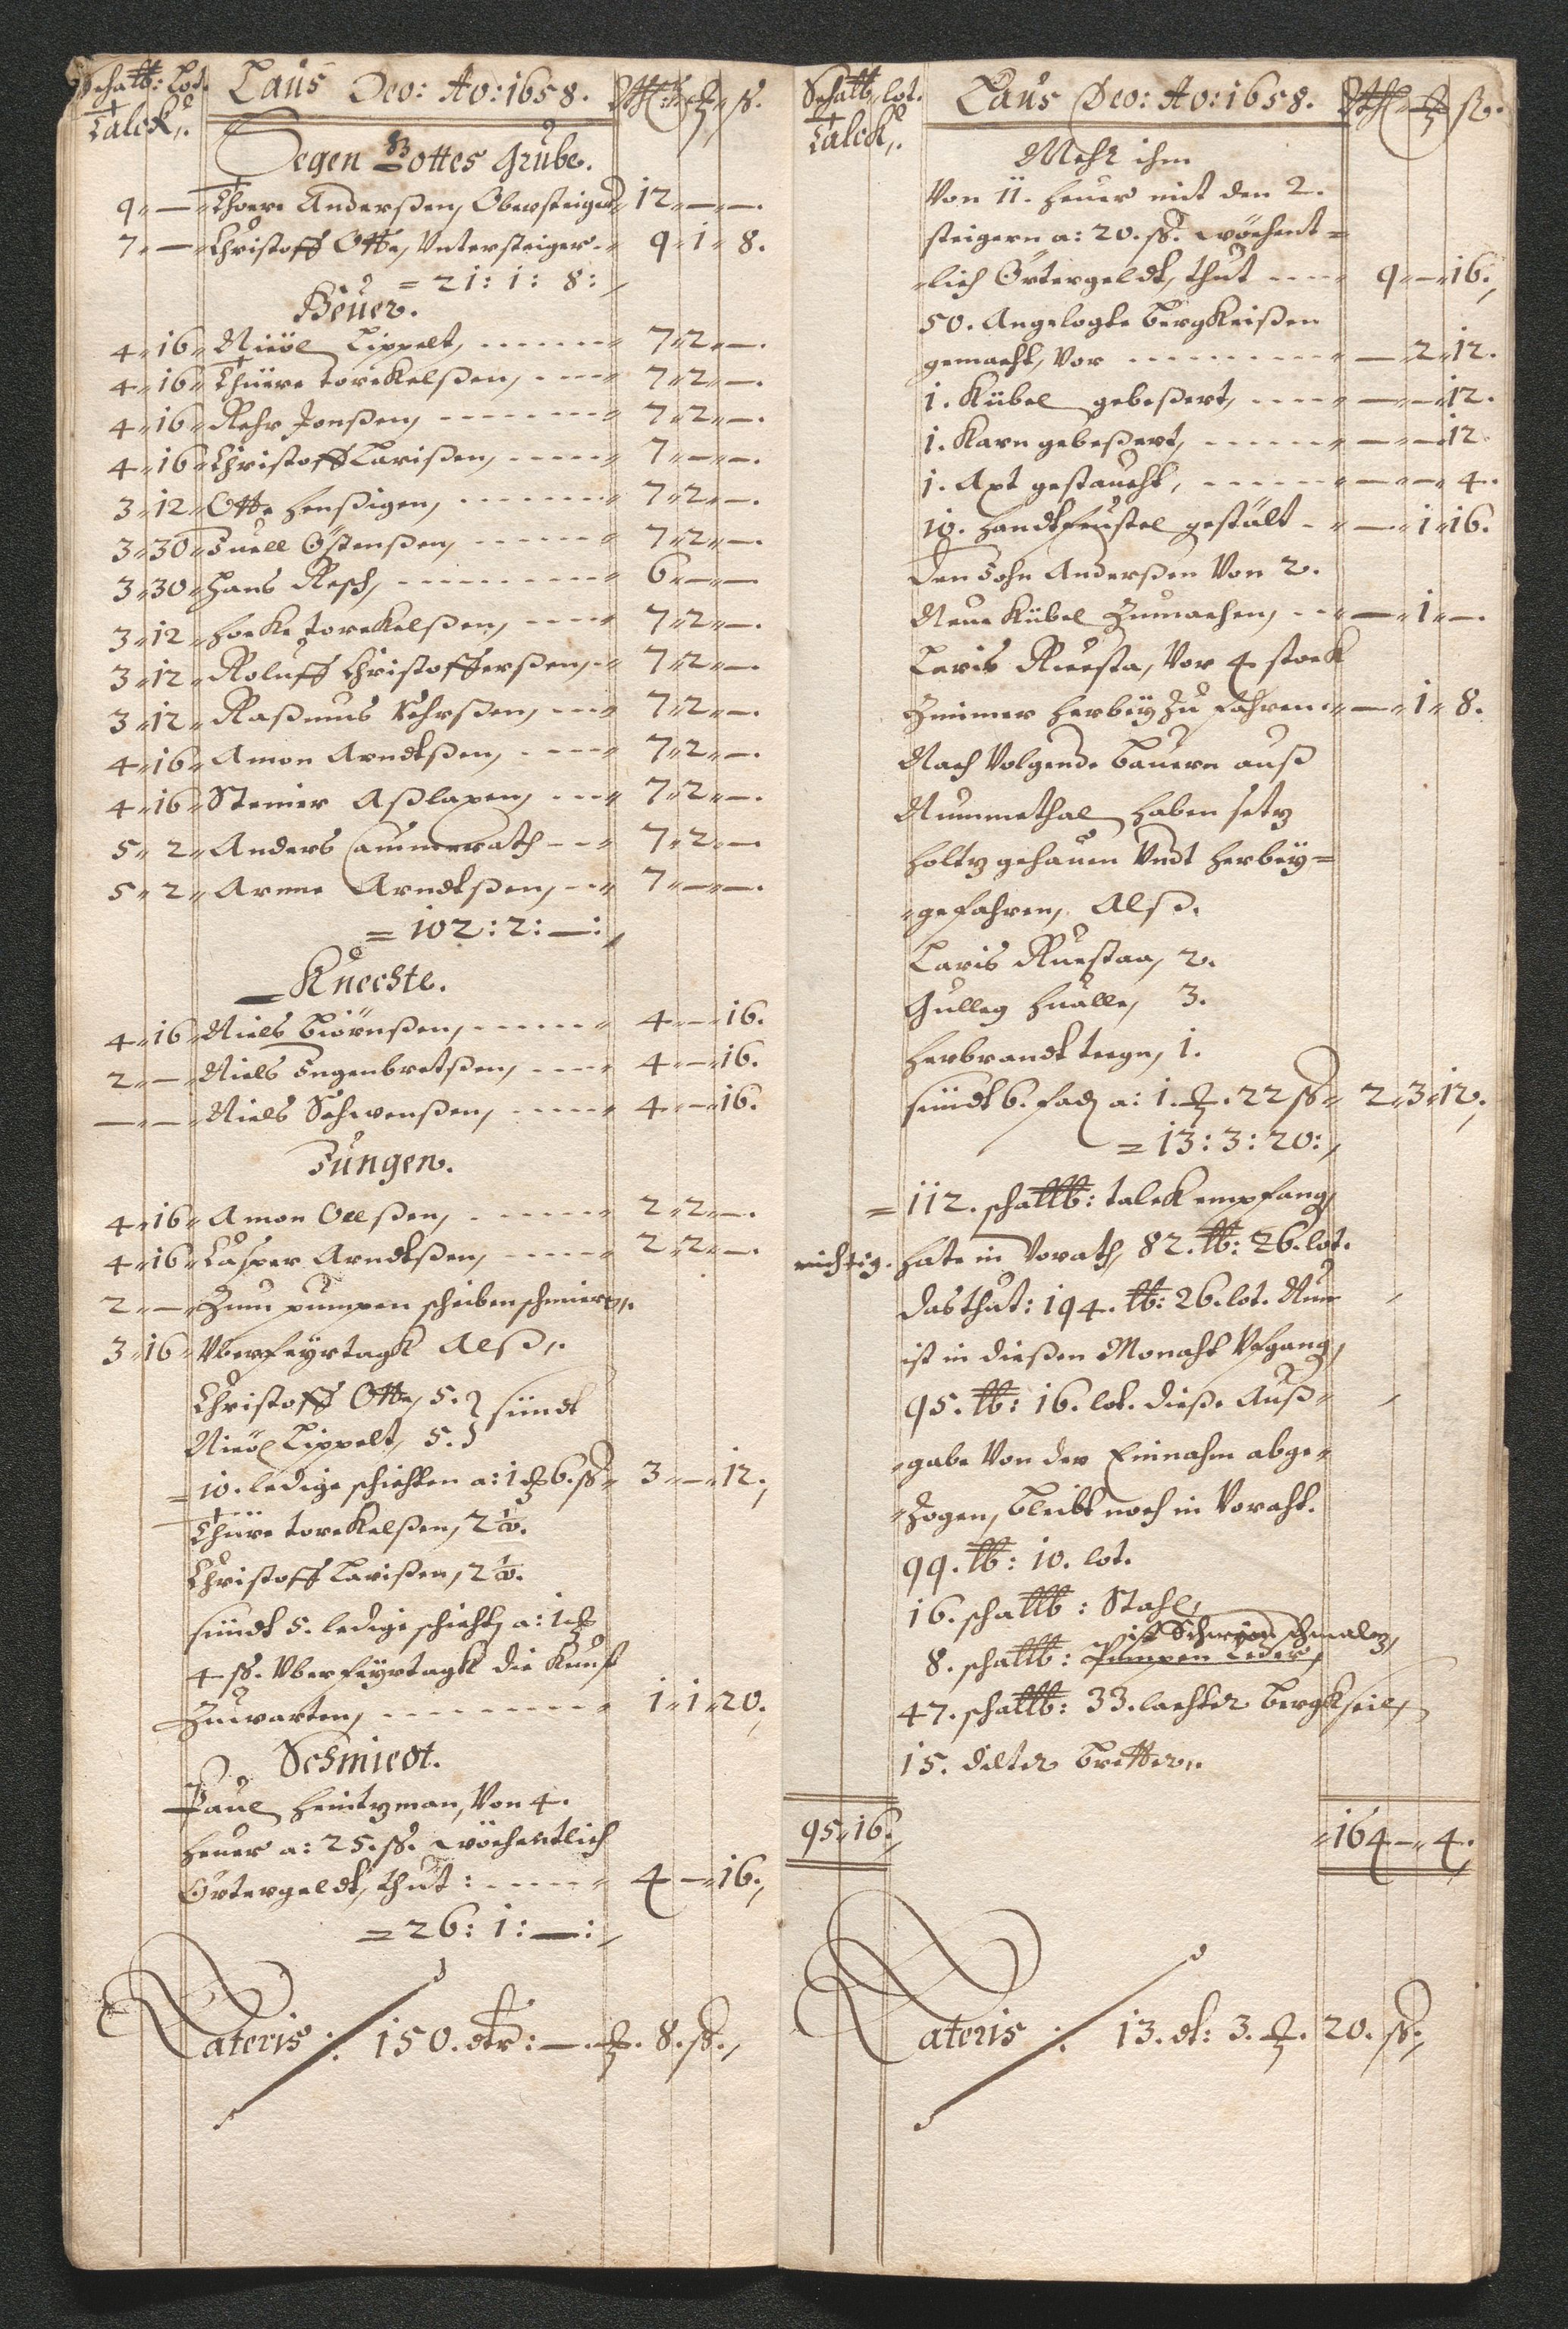 Schallb: Lot. Laus Deo: Ao: 1658. Rthl: ß.
Talck,.
Segen Gottes Grube.
9 — Thore Anderßen, Obersteiger 12 — —.
7 — Christoff Otte, Untersteiger 9 1 8.
= 21: 1: 8:
Heuer.
4 16 Nicol Lippelt, 7 2 —.
4 16 Thiüre torekelßen, 7 2 —.
4 16 Rehr Jonßen, 7 2 —.
4 16 Christoff Larißen, 7 — —.
3 12 Otte Henßigen, 7 2 —.
3 30 Juell Östenßen, 7 2 —.
3 30 Hans Resch, 6 — —
3 12 torekelßen, 7 2 —.
3 12 Roluff Christofferßen, 7 2 —.
3 12 Raßmus 7 2 —.
4 16 Amon Arndtßen, 7 2 —.
4 16 Steiner Aßlaxen, 7 2 —.
5 2 Anders Cammerrath 7 2 —
5 2 Arnne Arndtßen, 7 — —.
= 102: 2: —:
Knechte.
4 16 Niels Biörnßen, 4 — 16.
2 — Niels Engenbretßen, 4 — 16.
— — Niels Schwenßen, 4 — 16.
Jungen.
4 16 Amon Oelßen, 2 2 —.
4 16 Casper Arndtßen, 2 2 —.
2 — Zum pumpen scheiben schmieren,.
3 16 Uberfeyrtagk Alß,.
Christoff Otte, 5. } sündt
Nicol Lippelt, 5. }
= 10. ledige schichten a: 1 6. ß 3 — 12.
Thiüre torekelßen, 2½.
Christoff Larißen, 2½.
sündt 5. ledige schicht, a: 1
4 ß. Uberfeyrtagk die Kunst
Zuwarten, 1 1 20.
Schmiedt.
Paul Heintzman, Von 4.
Heuer a: 25. ß. wöchentlich
Örtergeldt, thut: 4 — 16.
= 26: 1: —:
Lateris: 150. dlr: —. 8. ß.
Schallb, lot. Laus Deo: Ao: 1658. Rthl ß.
Talck,.
Mehr ihm
Von 11. Heuer mit den 2.
steigern a: 20. ß. wöchent=
lich Örtergeldt, thut 9 — 16.
50. Angelegte Bergkeißen
gemacht, Vor — 2 12.
1. Kübel gebeßert, — — 12.
1. Karn gebeßert, — — 12.
1. Axt gestaucht, — — 4.
10. Handtfeustel gestält — 1 16.
Den John Anderßen Von 2.
Neue Kübel Zumachen, — 1 —.
Laris Ruesta, Vor 4 stock
Zimmer herbey Zu fahren — 1 8.
Nach Volgende Bauern auß
Nummethal haben setz
holtz gehauen Undt herbey=
gefahren, Alß.
Laris Ruestaa, 2.
Gulleg 3.
Herbrandt teegn, 1.
sündt 6. fad, a: 1. 22 ß 2 3 12.
= 13: 3: 20:
= 112. schallb: talck empfang,
richtig. hate in Vorath, 82. lb: 26. lot.
das thut: 194. lb: 26. lot. Nun
ist in dießen Monaht Ufgang,
95. lb: 16. lot. dieße Auß
gabe Von der Einnahm abge
Zogen, bleibt noch in Voraht.
99. lb: 10. lot.
16. schallb: Stahl,
ist Schweine schmaltz,
8. schallb: Pumpen Leder,
47. schallb: 33. lachter Bergkseil,
15. dilter Bretter,.
95 16. 164 — 4.
Lateris: 13. dl: 3. 20. ß.